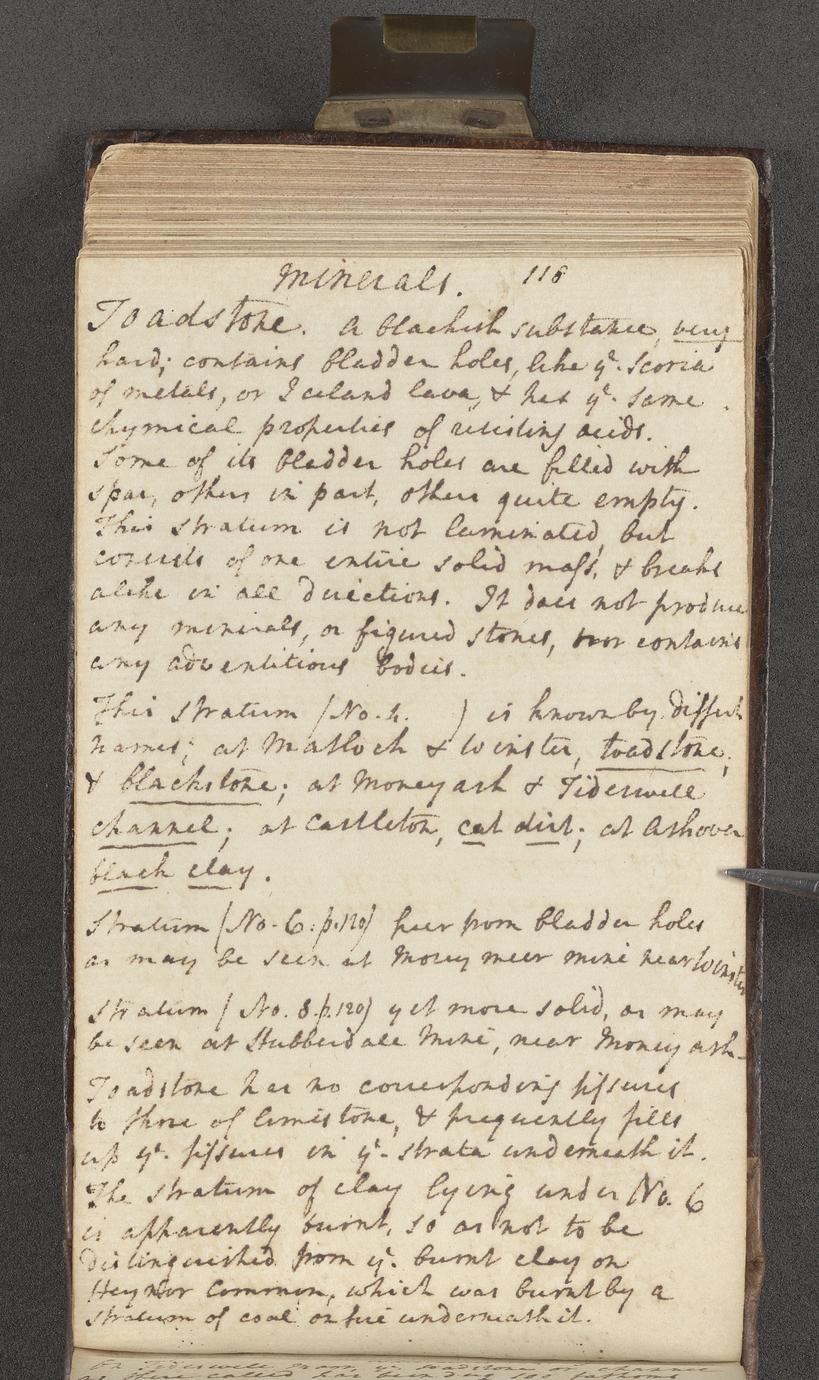 Minerals. 118
Toadstone. A blackish substance, very
hard; contains bladder holes, like yᵉ. Scoria
of metals, or Iceland lava, & has yᵉ. same
chymical properties of resisting acids.
Some of its bladder holes are filled with
spar, others in part, others quite empty.
This stratum is not laminated, but
consists of one entire solid maſs, & breaks
alike in all directions. It does not produce
any minerals, or figured stones, nor contains
any adventitious bodies.
This Stratum (No. 4. ) is known by diffent
names; at Matlock & Winster, toadstone,
& blackstone; at Moneyash & Tideswell
channel; at Castleton, cat dirt; at Ashover
black clay.
Stratum (No. 6. p.120) freer from bladder holes
as may be seen at Mosey meer mine near Winster
Stratum (No. 8. p.120) yet more solid, as may
be seen at Hubberdale Mine, near Money ash-
Toadstone has no corresponding fiſsures
to those of limestone, & frequently fills
up yᵉ. fiſsures in yᵉ. strata underneath it.
The stratum of clay lying under No. 6
is apparently burnt, so as not to be
distinguished from yᵉ. burnt clay on
Heynor Common, which was burnt by a
stratum of coal on fire underneath it.
In Tideswell Moor, yᵉ. toadstone or channel
as there called has been dug 100 fathoms